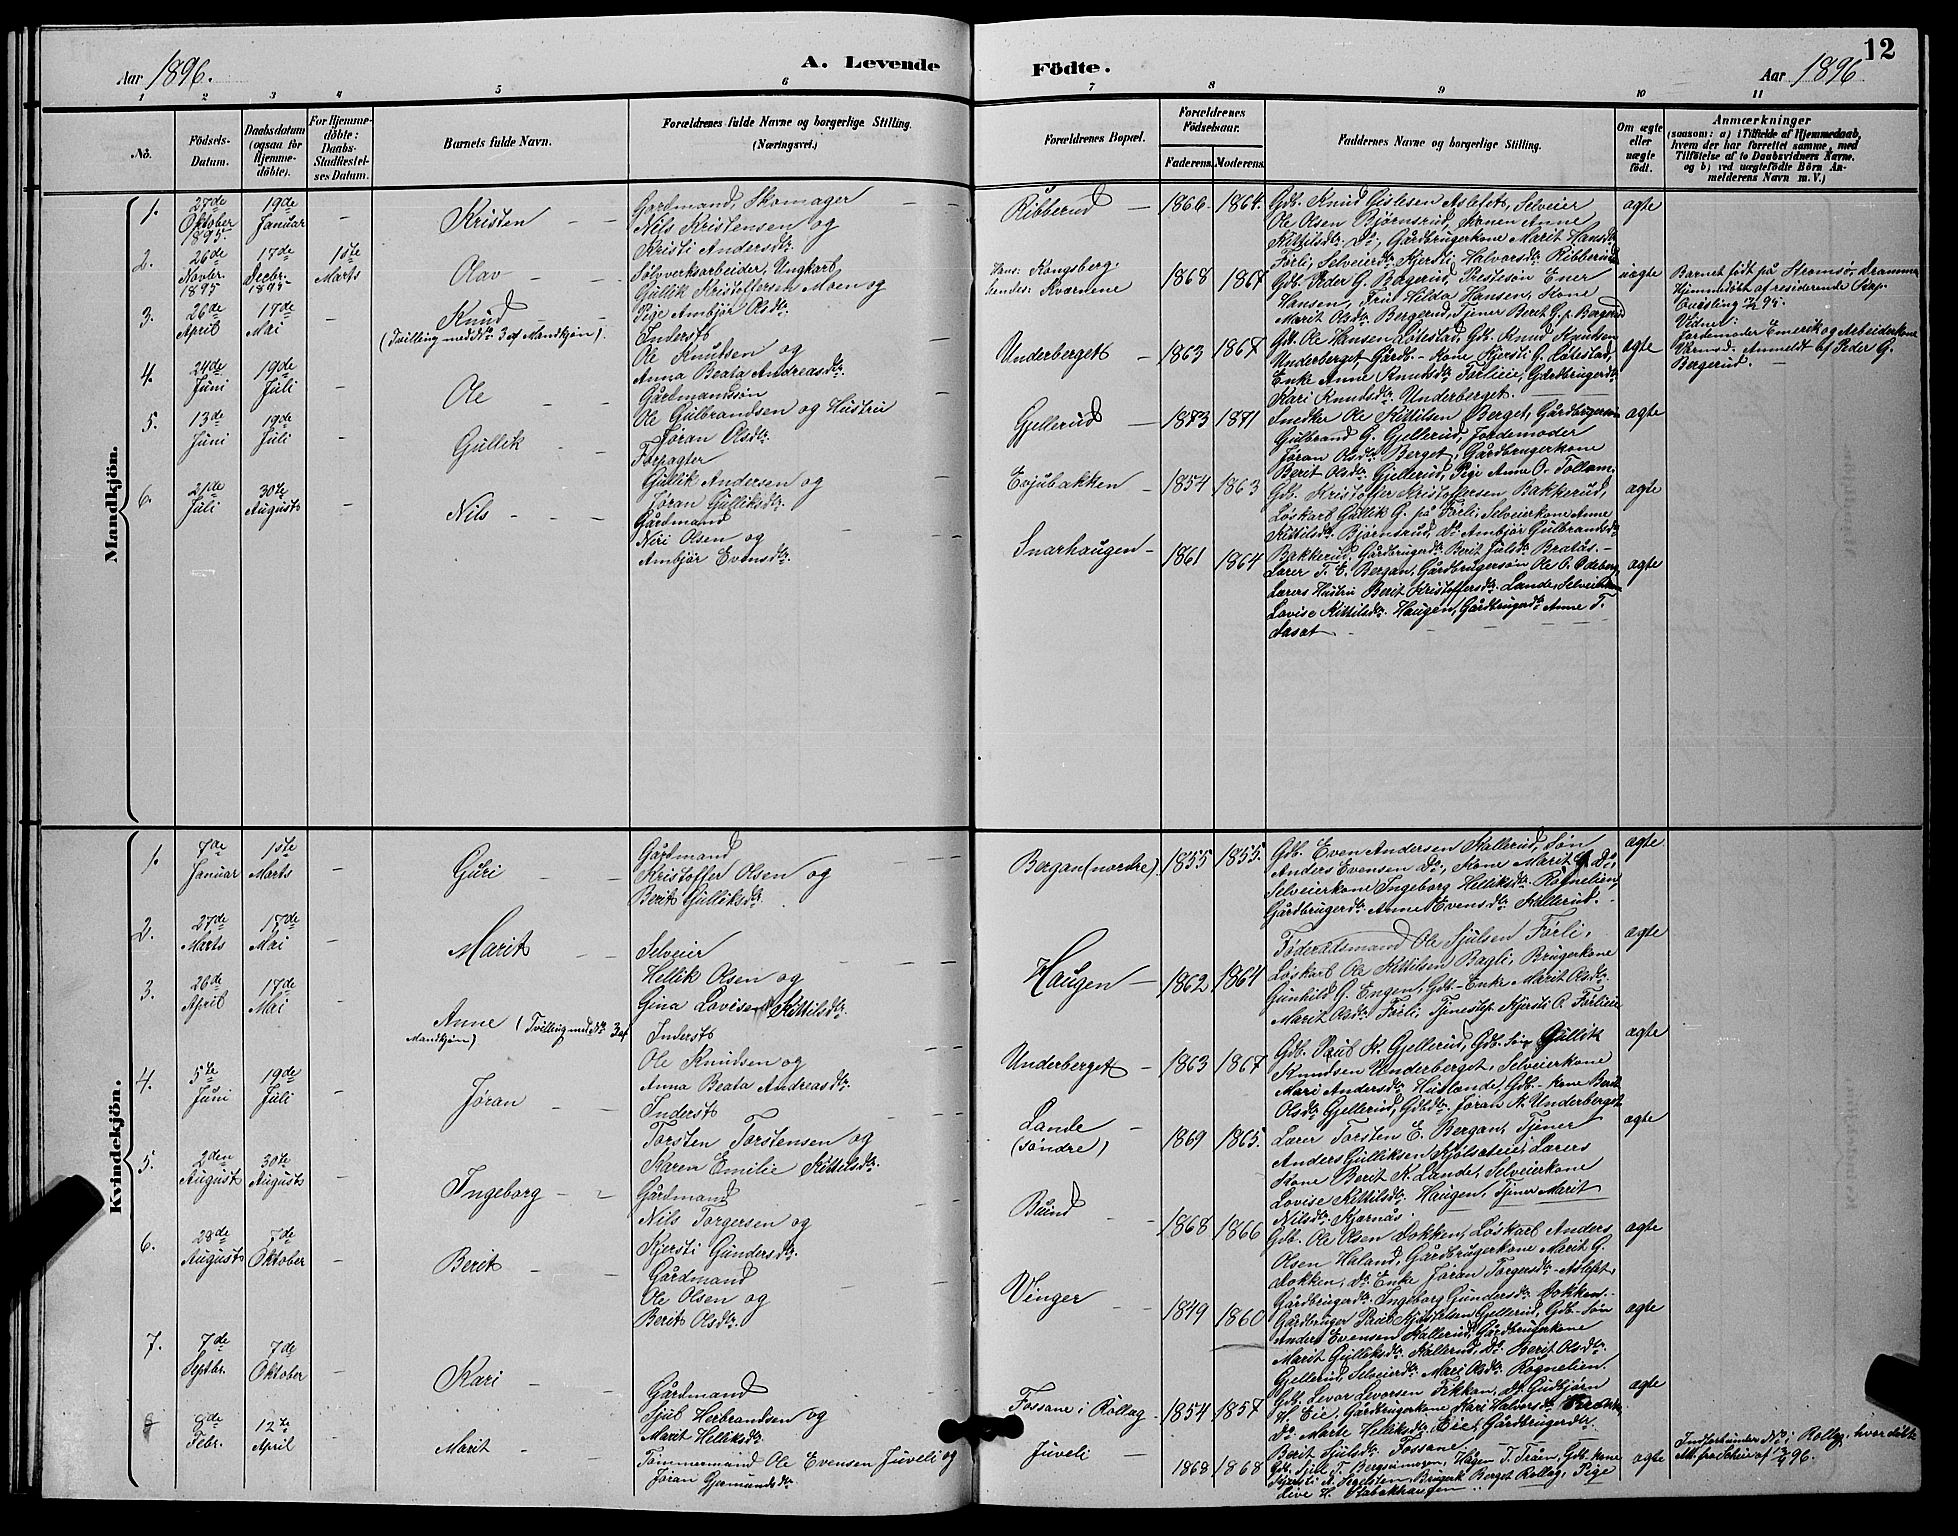 12
Aar 1896.
A. Levende Födte.
Aar 1896
1 2 3 4 5 6 7 8 9 10 11
No.
Födsels-
Datum.
Daabsdatum
(ogsaa for
Hjemme-
döbte).
For Hjemme-
döbte:
Daabs-
Stadfæstel-
ses Datum.
Barnets fulde Navn.
Forældrenes fulde Navne og borgerlige Stilling.
(Næringsvei.)
Forældrenes Bopæl.
Forældrenes
Födselsaar.
Faderens.
Moderens.
Faddernes Navne og borgerlige Stilling.
Om ægte
eller
uægte
födt.
Anmærkninger
(saasom: a) i Tilfælde af Hjemmedaab,
hvem der har forrettet samme, med
Tilföielse af to Daabsvidners Navne,
og b) ved uægtefödte Börn An-
melderens Navn m. V.)
Mandkjön.
1.
27de
Oktober
1895.
19de
Januar
-
Kristen
Gardmand, Skomager
Nils Kristensen og
Kristi Andersdtr.
Ribberud
1866 1864.
Gdb. Knud Gislesen Aslefet, Selveier
Ole Olsen Bjørnsrud, Konen Anne
Kittilsdtr. Do, Gårdbrugerkone Marit Hansdtr
Førli, Selveierdtr. Kjersti Halvorsdtr. Ribberud
ægte
2.
26de
Novbr.
1895
17de
Decbr.
1895
1ste
Marts
Olav
Sølvverksarbeider, Ungkarl
Gullik Kristoffersen Moen og
Pige Ambjør Olsdtr.
Hans: Kongsberg.
hendes: Kværnene
1868 1867
Gdb. Peder G. Bagerud, Prestesøn Ener
Hansen, Fru Hilda Hansen, Kone
Marit Olsdtr. Bergerud, Tjener Berit G. p. Bergerud
uægte
Barnet født på Strømsø, Drammen
Hjemmedøbt af residerende Kap.
Qvisling
Vidner:
Jordemoder Emerik og Arbeiderkone
Anmeldt af Peder G.
Bergerud.
3.
26de
April
17de
Mai
-
Knud
(Tvilling med No 3 af Mandkjøn).
Inderst
Ole Knutsen og
Anna Beata Andreasdtr.
Underberget
1863 1867
Gdb. Ole Hansen Løtestad, Gdb. Knud Knutsen
Underberget, Gårdb.-Kone Kjersti G. Løtestad,
Enke Anne Knudsdtr. Førlieie, Gårdbrugerdtr.
Kari Knudsdtr. Underberget.
ægte
4.
24de
Juni
19de
Juli
-
Ole
Gårdmannssøn
Ole Gulbrandsen og Hustru
Jøran Olsdtr.
Gjellerud
1873 1871
Snedker Ole Kittilsen Berget, Gårdbruger
Gulbrand G. Gjellerud, Jordemoder
Jøran Olsdtr. Berget, Gårdbrugerkone
Berit Olsdtr. Gjellerud, Pige Anne O.
ægte
5.
13de
Juni
19de
Juli
-
Gullik
Forpagter
Gullik Andersen og
Jøran Gulliksdtr.
Evjubakken
1854 1863
Gdb. Kristoffer Kristoffersen Bakkerud,
Løskarl Gullik G. på Førli, Selveierkone Anne
Kittilsdtr. Bjørnsrud, Do Ambjør Gulbrandsdtr
Bakkerud, Gårdbrugerdtr. Berit Julsdtr. Bratås.
ægte
6.
21de
Juli
30te
Augusts
-
Nils
Gårdmand
Niri Olsen og
Ambjør Evensdtr.
Snarhaugen
1861 1864
Lærer T. E. Bergan, Gårdbrugersøn Ole O. Ødeberg
Lærers Hustru Berit Kristoffersdtr. Lande, Selveierkone
Lovise Kittilsdtr. Haugen, Gårdbrugerdtr. Anne T.
ægte
Kvindekjön.
1.
7de
Januar
1ste
Marts
-
Guri
Gårdmand
Kristoffer Olsen og
Berit Gulliksdtr.
Bergan (nordre)
1855 1855.
Gdb. Even Andersen Kallerud, Søn
Anders Evensen Do, Kone Marit G. Do,
Selveierkone Ingeborg Helliksdtr. Rognelien,
Gårdbrugerdtr. Anne Evensdtr. Kallerud.
ægte
2.
27de
Marts
17de
Mai
-
Marit
Selveier
Hellik Olsen og
Gina Lovise Kittilsdtr.
Haugen
1862 1864
Føderådsmand Ole Sjulsen Førli,
Løskarl Ole Kittilsen Bagli, Brugerkone
Gunhild G. Engen, Gdb.-Enke Marit Olsdtr.
Marit Olsdtr. Førli, Tjenestep. Kjersti O. Førlieie
ægte
3.
26de
April
17de
Mai
-
Anne (Tvilling med No 3 af
Mandkjøn)
Inderst
Ole Knudsen og
Anna Beata Andreasdtr.
Underberget
1863 1867
Gdb. K. Gjellerud, Gdb. Søn Gullik
Knudsen Underberget, Selveierkone
Mari Andersdtr. Huslande, Gdb.-kone Berit
Olsdtr. Gjellerud, Gdbdtr. Jøran K. Underberget
ægte
4.
5te
Juni
19de
Juli
-
Jøran
Inderst
Torsten Torstensen og
Karen Emilie Kittilsdtr.
Lande
(søndre)
1869 1865.
Lærer Torsten E. Bergan, Tjener
Anders Gulliksen Kjølsateiei, Lærers
Kone Berit K. Lande, Selveierkone
Lovise Kittilsdtr. Haugen, Tjener Marit
Nilsdtr. Kjørnås.
ægte
5.
2den
Augusts
30te
Augusts
-
Ingeborg
Gårdmand
Nils Torgersen og
Kjersti Gundersdtr.
Bund
1868 1866
Gdb. Ole Olsen Dokken, Løskarl Anders
Olsen Haland, Gårdbrugerkone Marit G.
Dokken, Do Enke Jøran Torgersdtr. Aslefet,
Gårdbrugerdtr. Ingeborg Gundersdtr. Dokken.
ægte
6.
28de
Augusts
7de
Oktober
-
Berit
Gårdmand
Ole Olsen og
Berit Olsdtr.
Vinger
1849 1860
Gårdbruger Paal Kjittilsen Gjellerud, Gdb.-Søn
Anders Evensen Kallerud, Gårdbrugerkone
Marit Gulliksdtr. Kallerud, Do Berit Olsdtr.
Gjellerud, Selveierdtr. Mari Olsdtr. Rognelien.
ægte
7.
7de
Septbr.
7de
Oktober
-
Kari
Gårdmand
Sjul Herbrandsen og
Marit Helliksdtr.
Fossane i Rollag
1854 1857
Gdb. Levor Levorsen Fikkan, Do Gudbjørn
H. Eie, Gårdbrugerkone Kari Halvorsdtr.
Do Marte Helliksdtr. Eie, Gårdbrugerdtr
Berit Sjulsdtr. Fossane
ægte
8
8de
Febr.
12te
April
-
Marit
Tømmermand Ole Evensen Juveli og
Jøran Gjermundsdtr.
Juveli
1868 1868
Gdb. Sjul T. Bergsrimogen, Hågen T. Tråen, Gdb. kone
Brugerk. Berget Rollag, Pige
Live H. Stabekhaugen.
ægte
Indført under No i Rollag, hvor døbt